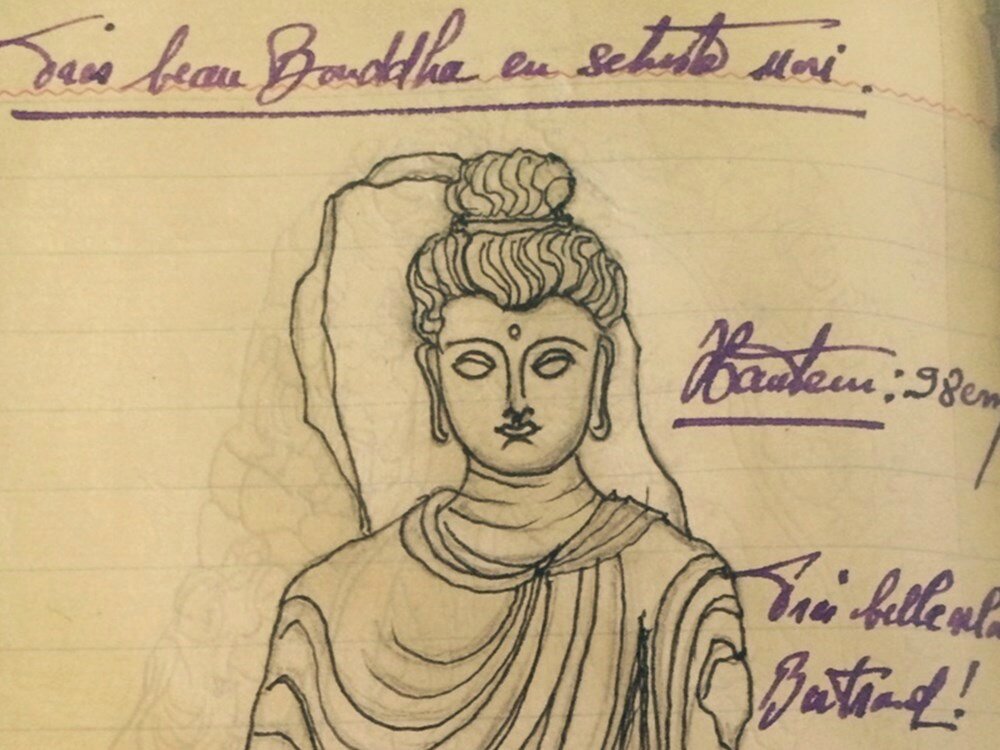 Très beau Bouddha en schiste noir.
Hauteur: 98cm
Très belle
Bertrand!